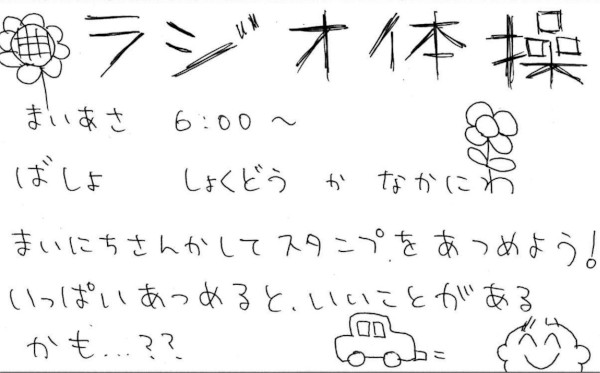 ラジオ体操
まいあさ 6:00〜
ばしょ しょくどう か なかにわ
まいにちさんかしてスタンプをあつめよう!
いっぱいあつめると、いいことがある
かも...??